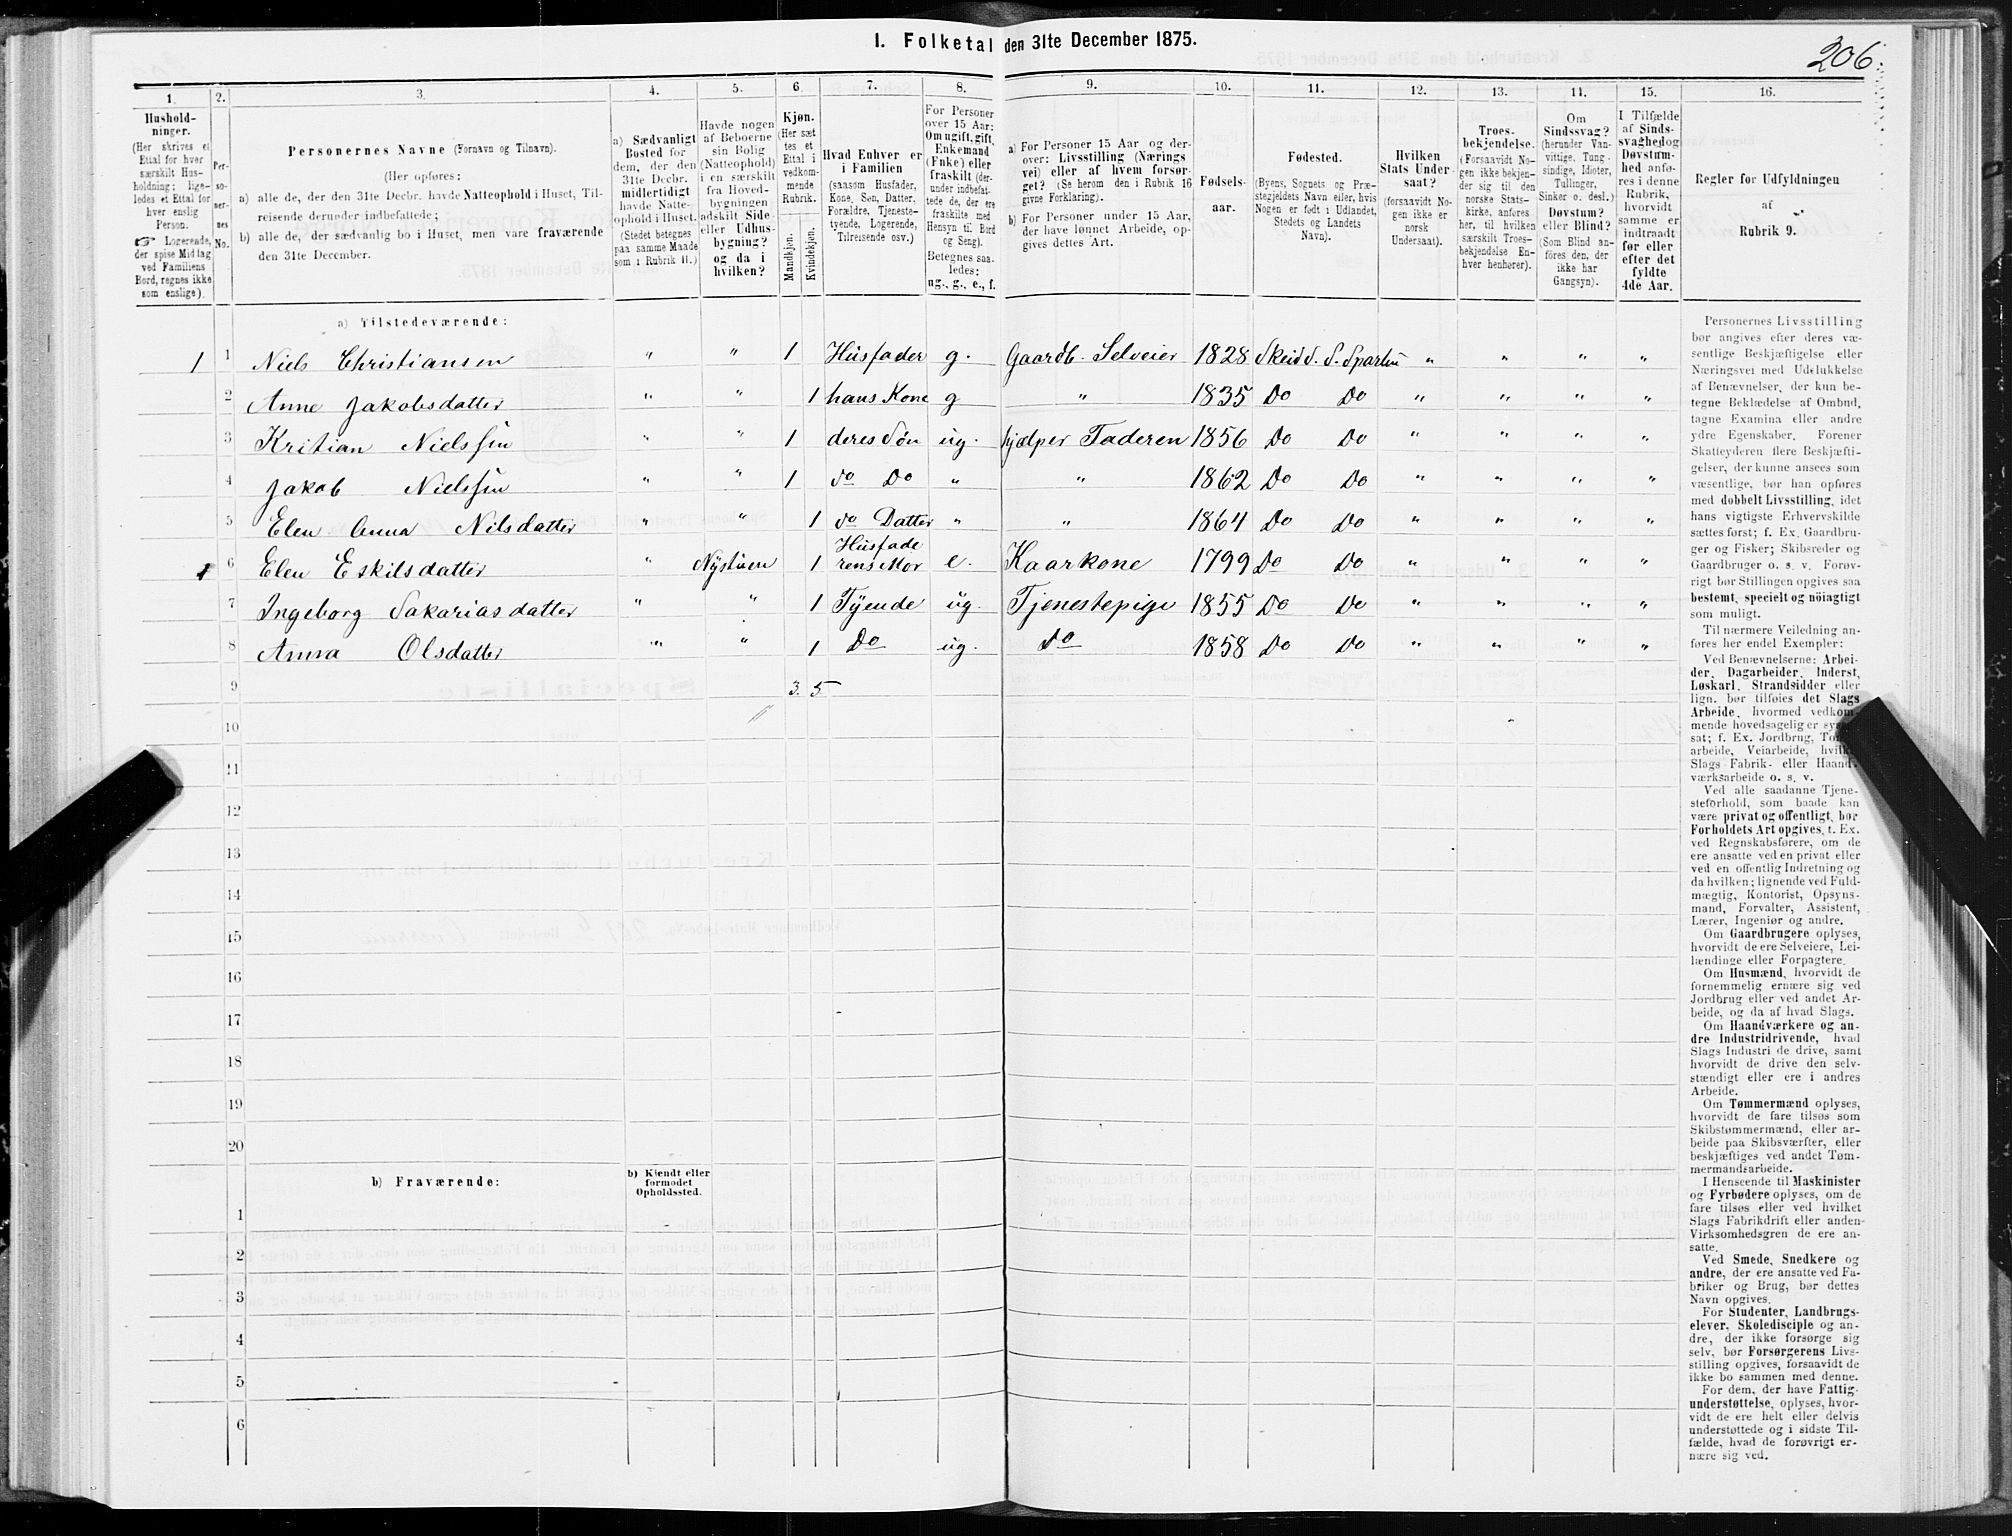 206.
I. Folketal den 31te December 1875.
1. 2. 3. 4. 5. 6. 7. 8. 9. 10. 11. 12. 13. 14. 15. 16.
Hushold-
ninger.
(Her skrives et
Ettal for hver
særskilt Hus-
holdning; lige-
ledes et Ettal for
hver enslig
Person.
☞ Logerende,
der spise Middag
ved Familiens
Bord, regnes ikke
som enslige).
Per-
so-
ner-
nes
No.
Personernes Navne (Fornavn og Tilnavn).
(Her opføres:
a) alle de, der den 31te Decbr. havde Natteophold i Huset, Til-
reisende derunder indbefattede;
b) alle de, der sædvanlig bo i Huset, men vare fraværende
den 31te December.
a) Sædvanligt
Bosted for
dem, der den
31te Decbr.
midlertidigt
havde Natte-
ophold i Huset.
(Stedet betegnes
paa samme Maade
som i Rubrik 11.)
Havde nogen
af Beboerne
sin Bolig
(Natteophold)
i en særskilt
fra Hoved-
bygningen
adskilt Side-
eller Udhus-
bygning?
og da i
hvilken?
Kjøn.
(Her sæt-
tes et
Ettal i
vedkom-
mende
Rubrik.
Mandkjøn.
Kvindekjøn.
Hvad Enhver er
i Familien
(saasom Husfader,
Kone, Søn, Datter,
Forældre, Tjeneste-
tyende, Logerende,
Tilreisende osv.)
For Personer
over 15 Aar:
Om ugift, gift,
Enkemand
(Enke) eller
fraskilt (der-
under indbefat-
tede de, der ere
fraskilte med
Hensyn til Bord
og Seng).
Betegnes saa-
ledes:
ug., g., e., f.
a) For Personer 15 Aar og der-
over: Livsstilling (Nærings
vei) eller af hvem forsør-
get? (Se herom den i Rubrik 16
givne Forklaring).
b) For Personer under 15 Aar,
der have lønnet Arbeide, op-
gives dettes Art.
Fødsels-
aar.
Fødested.
(Byens, Sognets og Præ-
stegjeldets Navn eller, hvis
Nogen er født i Udlandet,
Stedets og Landets
Navn).
Hvilken
Stats Under-
saat?
(forsaavidt No-
gen ikke er
norsk
Undersaat).
Troes-
bekjendelse.
(Forsaavidt No-
gen ikke bekjen-
der sig til den
norske Stats-
kirke, anføres
her, til hvilken
særskilt Troes-
bekjendelse En-
hver henhører).
Om
Sindssvag?
(herunder Van-
vittige, Tung-
sindige, Idioter,
Tullinger,
Sinker o. desl.)
Døvstum?
eller Blind?
(Som Blind an-
føres den, der
ikke har
Gangsyn).
I Tilfælde
af Sinds-
svaghed og
Døvstum-
hed anfø-
res i denne
Rubrik,
hvorvidt
samme er
indtraadt
før eller
efter det
fyldte
4de Aar.
Regler for Udfyldningen
af
Rubrik 9.
a) Tilstedeværende:
1 1 Niels Christiansen " " 1 Husfader g. Gaardb. Selveier 1828 Skeid S. S. Sparbu " " " "
2 Anne Jakobsdatter " " 1 hans Kone g " 1835 Do Do " " " "
3 Kritian Nielssøn " " 1 deres Søn ug. hjælper Faderen 1856 Do Do " " " "
4 Jakob Nielssøn " " 1 do Do " " 1862 Do Do " " " "
5 Elen Anna Nilsdatter " " 1 do Datter " " 1864 Do Do " " " "
1 6 Elen Eskilsdatter " Nystuen 1 Husfade
rens Mor e. Kaarkone 1799 Do Do " " " "
7 Ingeborg Sakariasdatter " " 1 Tyende ug. Tjenestepige 1855 Do Do " " " "
8 Anna Olsdatter " " 1 Do ug. do 1858 Do Do " " " "
9 3. 5
10
11
12
13
14
15
16
17
18
19
20
b) Fraværende:
b) Kjendt eller
formodet
Opholdssted.
1
2
3
4
5
6
Personernes Livsstilling
bør angives efter deres væ-
sentlige Beskjæftigelse eller
Næringsvei med Udelukkelse
af Benævnelser, der kun be-
tegne Beklædelse af Ombud,
tagne Examina eller andre
ydre Egenskaber. Forener
Skatteyderen flere Beskjæfti-
gelser, der kunne ansees som
væsentlige, bør han opføres
med dobbelt Livsstilling, idet
hans vigtigste Erhvervskilde
sættes først; f. Ex. Gaardbru-
ger og Fisker; Skibsreder og
Gaardbruger o. s. v. Forøv-
rigt bør Stillingen opgives saa
bestemt, specielt og nöiagtigt
som muligt.
Til nærmere Veiledning an-
føres her endel Exempler:
Ved Benævnelserne: Arbei-
der, Dagarbeider, Inderst,
Løskarl, Strandsidder eller
lign. bør tilføies det Slags
Arbeide, hvormed vedkom-
mende hovedsagelig er syssel-
sat; f. Ex. Jordbrug, Tomte-
arbeide, Veiarbeide, hvilket
Slags Fabrik- eller Haand-
værksarbeide o. s. v.
Ved alle saadanne Tjene-
steforhold, som baade kan
være privat og offentligt, bør
Forholdets Art opgives, t. Ex.
ved Regnskabsførere, om de
ere ansatte ved en privat eller
ved en offentlig Indretning og
da hvilken; lignende ved Fuld-
mægtig, Kontorist, Opsyns-
mand, Forvalter, Assistent,
Lærer, Ingeniør og andre.
Om Gaardbrugere oplyses,
hvorvidt de ere Selveiere, Lei-
lændinge eller Forpagtere.
Om Husmænd, hvorvidt de
fornemmelig ernære sig ved
Jordbrug eller ved andet Ar-
beide, og da af hvad Slags.
Om Haandværkere og an-
dre Industridrivende, hvad
Slags Industri de drive, samt
hvorvidt de drive den selv-
stændigt eller ere i andres
Arbeide.
Om Tømmermænd oplyses,
hvorvidt de fare tilsøs som
Skibstømmermænd, eller ar-
beide paa Skibsværfter, eller
beskjæftiges ved andet Tøm-
mermandsarbeide.
I Henseende til Maskinister
og Fyrbødere oplyses, om de
fare tilsøs eller ved hvilket
Slags Fabrikdrift eller anden
Virksomhedsgren de ere an-
satte.
Ved Smede, Snedkere og
andre, der ere ansatte ved Fa-
briker og Brug, bør dettes
Navn opgives.
For Studenter, Landbrugs-
elever, Skoledisciple og an-
dre, der ikke forsørge sig
selv, bør Forsørgerens Livs-
stilling opgives, forsaavidt de
ikke bo sammen med denne.
For dem, der have Fattig-
understøttelse, oplyses, hvor-
vidt de ere helt eller delvis
understøttede og i sidste Til-
fælde, hvad de forøvrigt er-
nære sig ved.